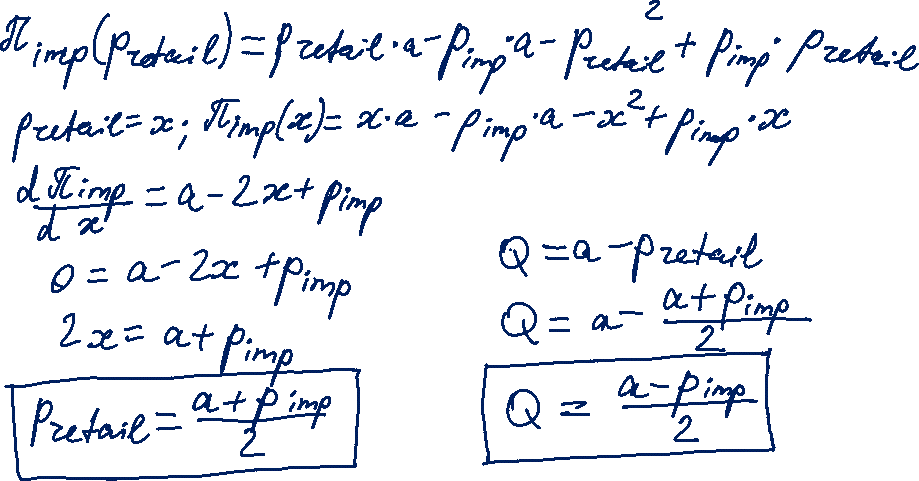 π_imp(p_retail) = p_retail·a − p_imp·a − p_retail² + p_imp·p_retail
p_retail = x; π_imp(x) = x·a − p_imp·a − x² + p_imp·x
dπ_imp/dx = a − 2x + p_imp
0 = a − 2x + p_imp
2x = a + p_imp
p_retail = (a + p_imp)/2
Q = a − p_retail
Q = a − (a + p_imp)/2
Q = (a − p_imp)/2